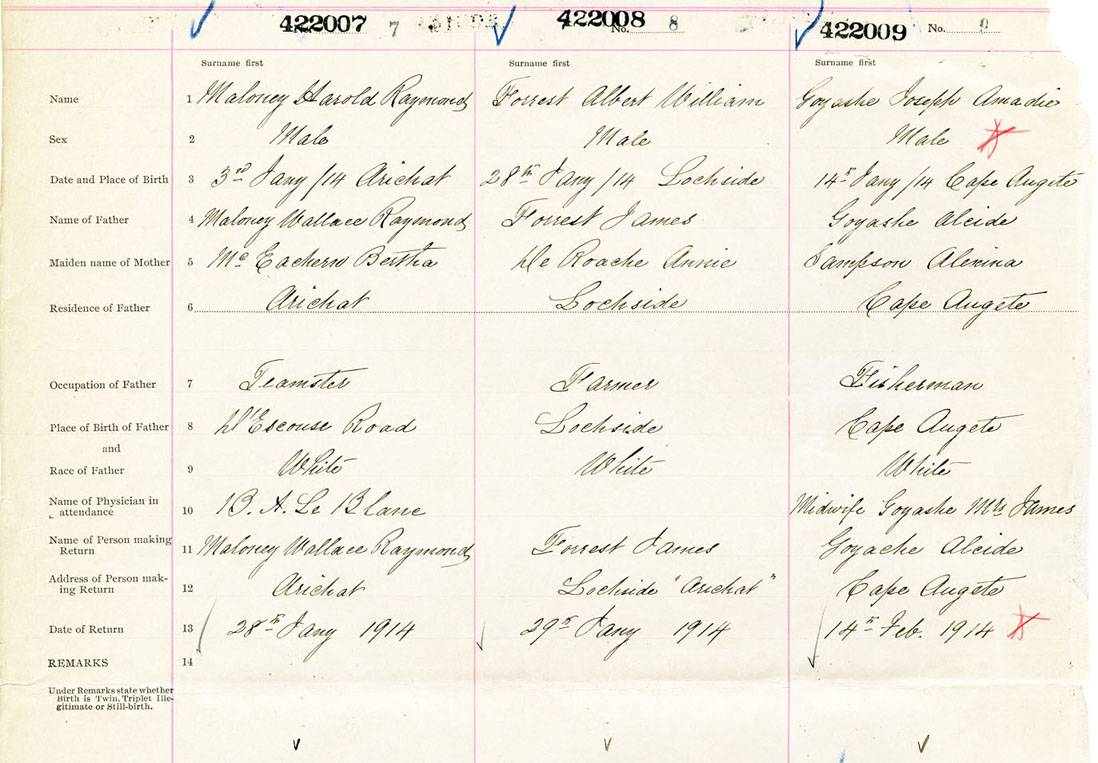 422007 7 422008 No. 8 422009 No. 9
Surname first Surname first Surname first
Name 1 Maloney Harold Raymond Forrest Albert William Goyashe Joseph Amadie
Sex 2 Male Male Male
Date and Place of Birth 3 3rd Jany /14 Arichat 28th Jany /14 Lochside 14th Jany /14 Cape Augete
Name of Father 4 Maloney Wallace Raymond Forrest James Goyashe Alcide
Maiden name of Mother 5 Mc Eachern Bertha De Roache Annie Sampson Alenina
Residence of Father 6 Arichat Lochside Cape Augete
Occupation of Father 7 Teamster Farmer Fisherman
Place of Birth of Father 8 D'Escouse Road Lochside Cape Augete
and
Race of Father 9 White White White
Name of Physician in
attendance 10 B. A. Le Blanc Midwife Goyashe Mrs James
Name of Person making
Return 11 Maloney Wallace Raymond Forrest James Goyache Alcide
Address of Person mak-
ing Return 12 Arichat Lochside "Arichat" Cape Augete
Date of Return 13 28th Jany 1914 29th Jany 1914 14th Feb. 1914
REMARKS 14
Under Remarks state whether
Birth is Twin, Triplet Ille-
gitimate or Still-birth.